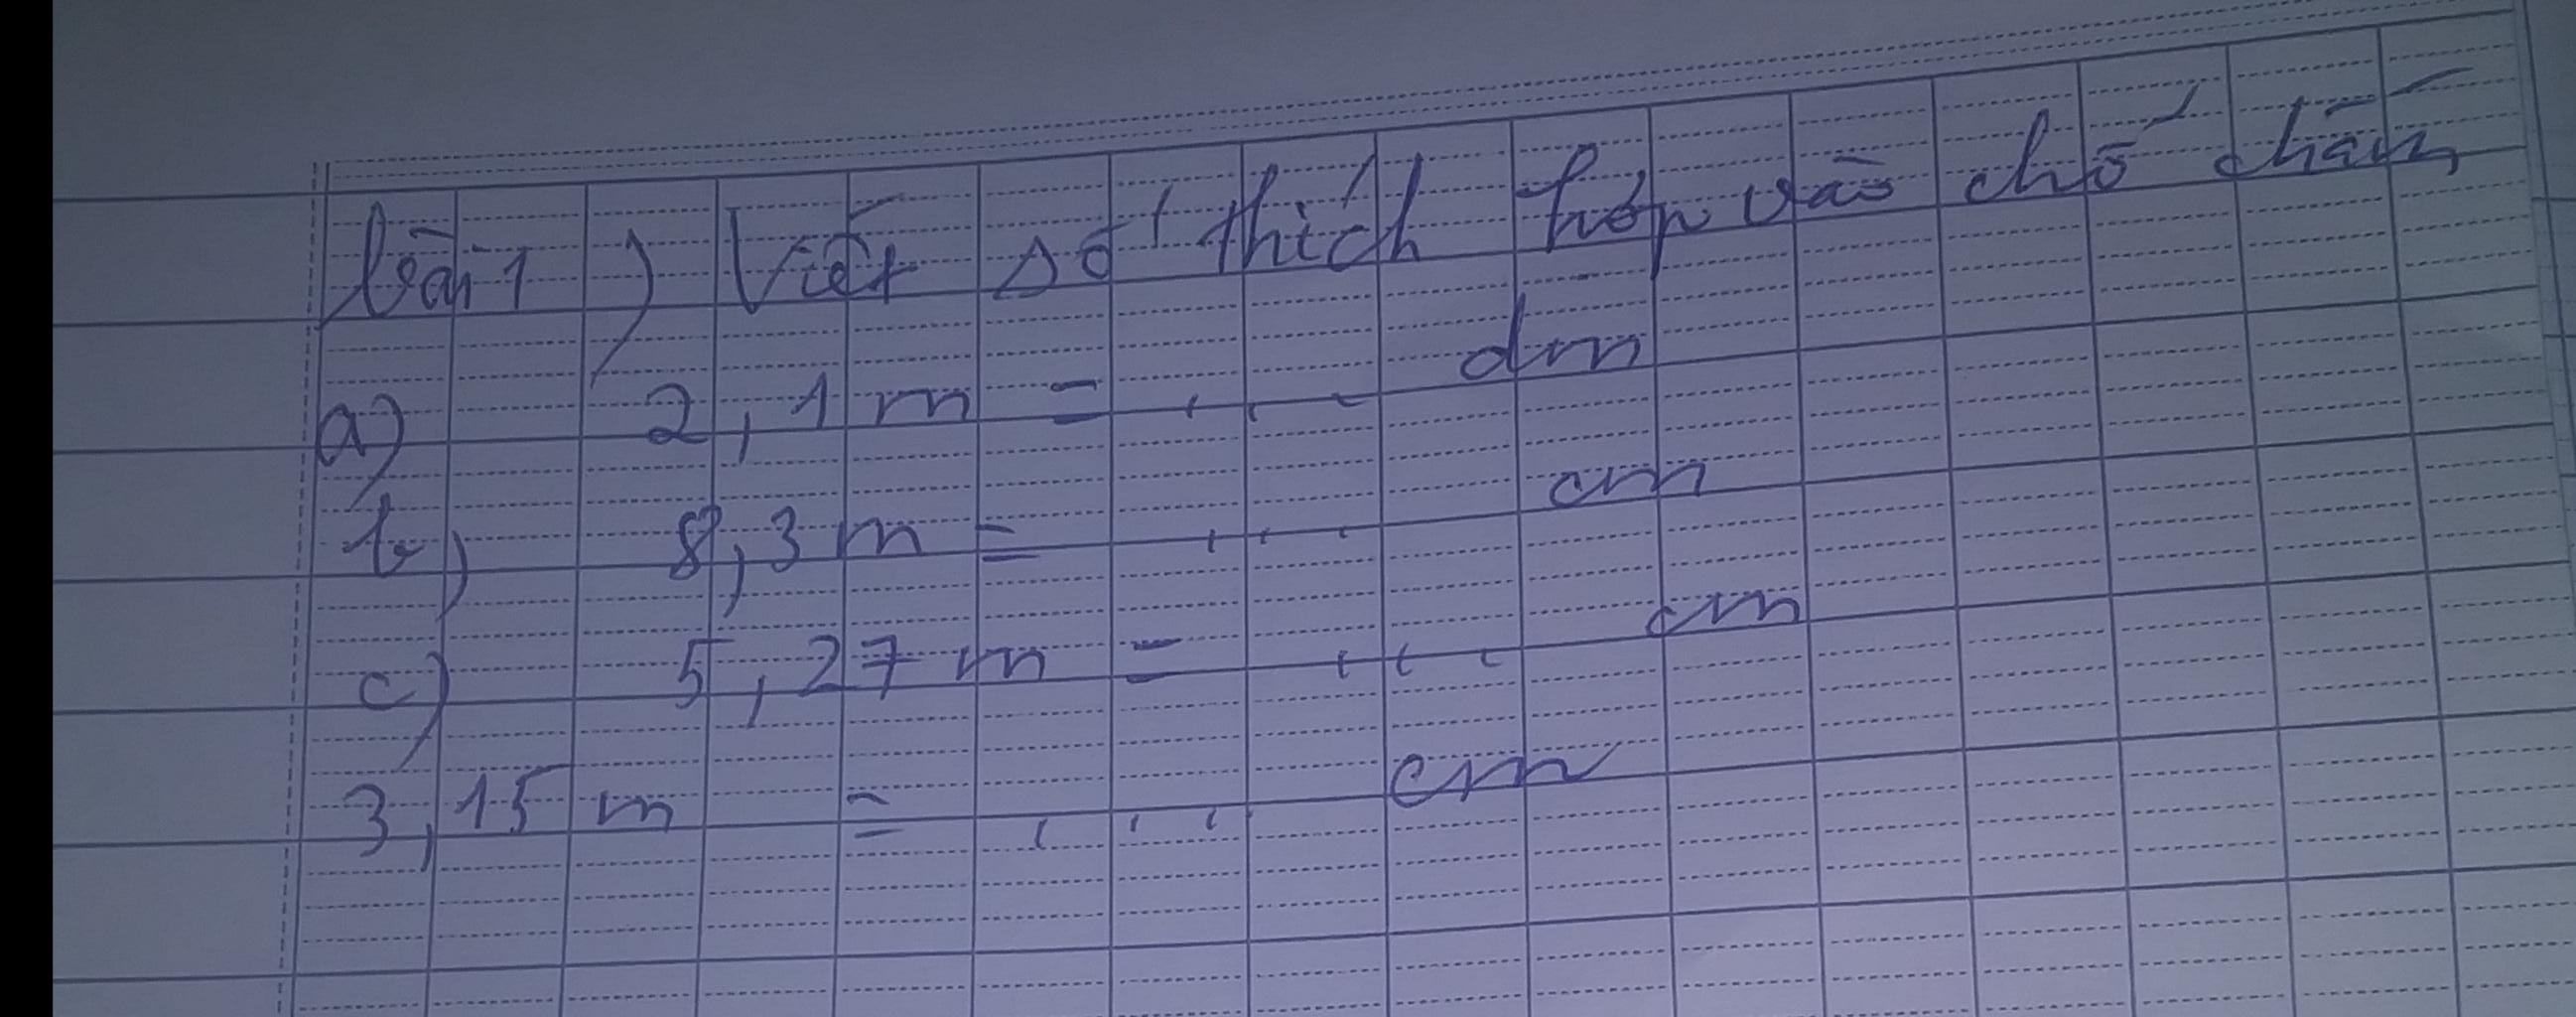 bài 1) Viết số thích hợp vào chỗ chấm
a) 2,1 m = ... dm
b) 8,3 m = ... cm
c) 5,27 m = ... cm
3,15 m = ... cm